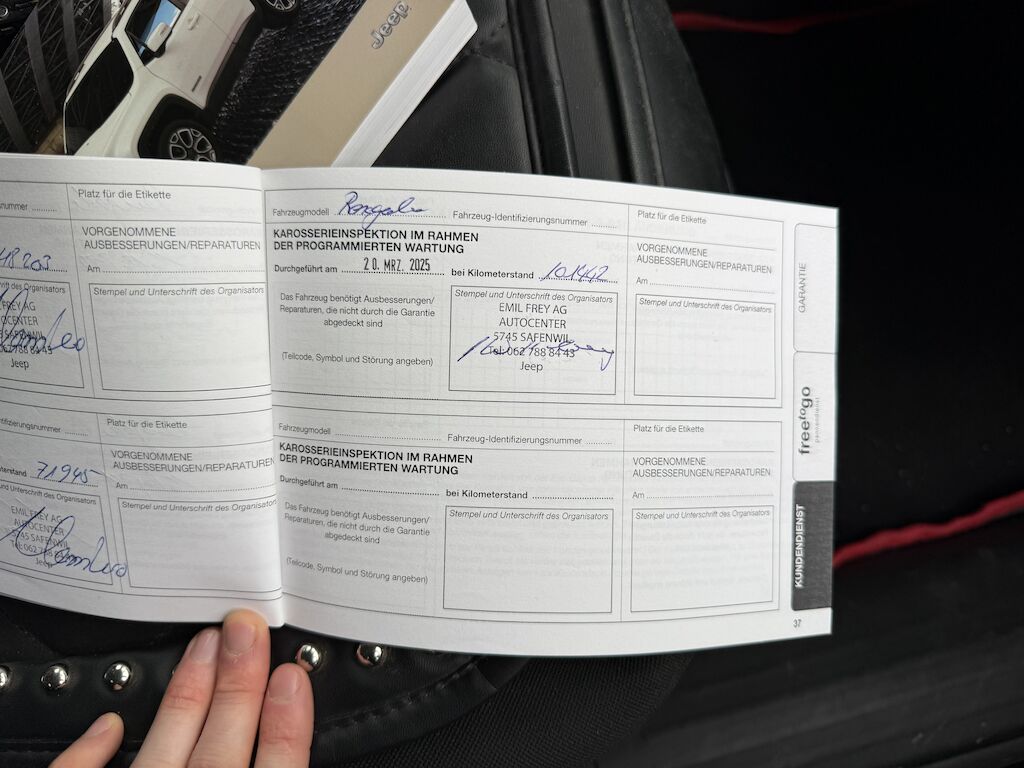 Jeep
nummer ..........
48203
Stempel und Unterschrift des Organisators
EMIL FREY AG
AUTOCENTER
5745 SAFENWIL
Tel: 062 788 84 43
Jeep
Platz für die Etikette
VORGENOMMENE
AUSBESSERUNGEN/REPARATUREN
Am
Stempel und Unterschrift des Organisators
Identifizierungsnummer ..........
Kilometerstand 71945
und Unterschrift des Organisators
EMIL FREY AG
AUTOCENTER
5745 SAFENWIL
Tel: 062 788 84
Jeep
Platz für die Etikette
VORGENOMMENE
AUSBESSERUNGEN/REPARATUREN
Am
Stempel und Unterschrift des Organisators
Fahrzeugmodell Renegade Fahrzeug-Identifizierungsnummer
KAROSSERIEINSPEKTION IM RAHMEN
DER PROGRAMMIERTEN WARTUNG
Durchgeführt am 20. MRZ. 2025 bei Kilometerstand 101442
Das Fahrzeug benötigt Ausbesserungen/
Reparaturen, die nicht durch die Garantie
abgedeckt sind
(Teilcode, Symbol und Störung angeben)
Stempel und Unterschrift des Organisators
EMIL FREY AG
AUTOCENTER
5745 SAFENWIL
Tel: 062 788 84 43
Jeep
Platz für die Etikette
VORGENOMMENE
AUSBESSERUNGEN/REPARATUREN
Am
Stempel und Unterschrift des Organisators
Fahrzeugmodell Fahrzeug-Identifizierungsnummer
KAROSSERIEINSPEKTION IM RAHMEN
DER PROGRAMMIERTEN WARTUNG
Durchgeführt am bei Kilometerstand
Das Fahrzeug benötigt Ausbesserungen/
Reparaturen, die nicht durch die Garantie
abgedeckt sind
(Teilcode, Symbol und Störung angeben)
Stempel und Unterschrift des Organisators
Platz für die Etikette
VORGENOMMENE
AUSBESSERUNGEN/REPARATUREN
Am
Stempel und Unterschrift des Organisators
GARANTIE
freetogo
pannendienst
KUNDENDIENST
37